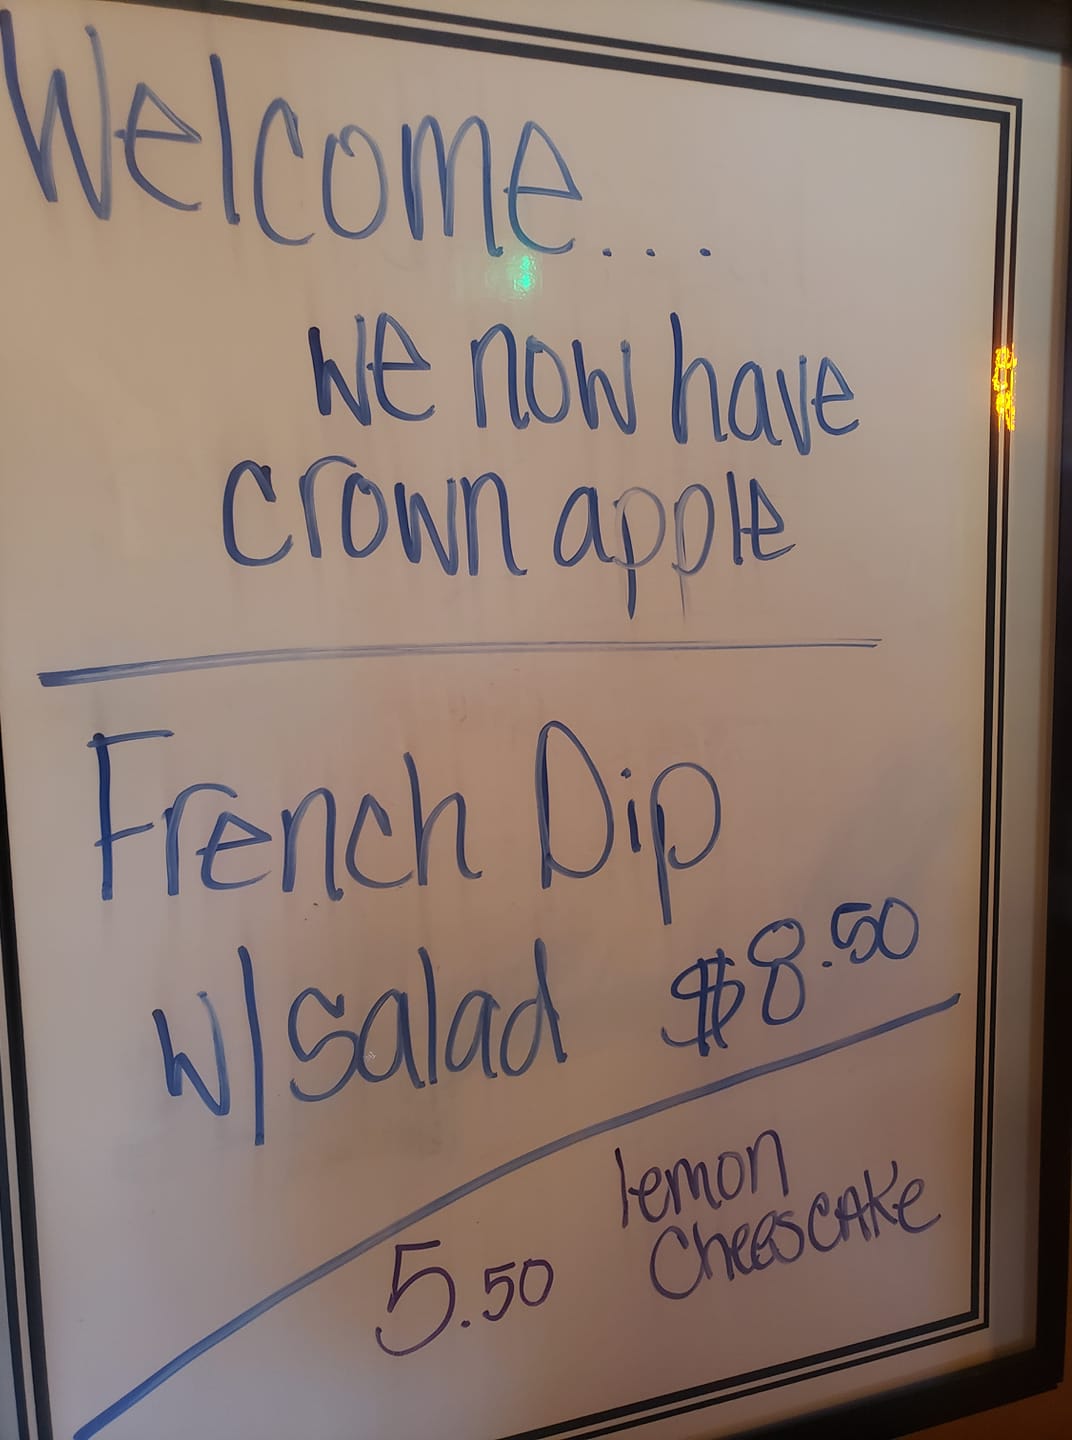 Welcome...
we now have
crown apple
French Dip
w/salad $8.50
lemon
5.50 cheesecAKe